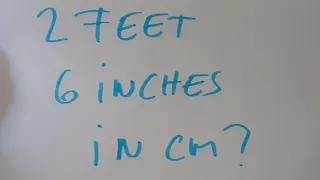 2 FEET
6 iNCHES
iN CM?